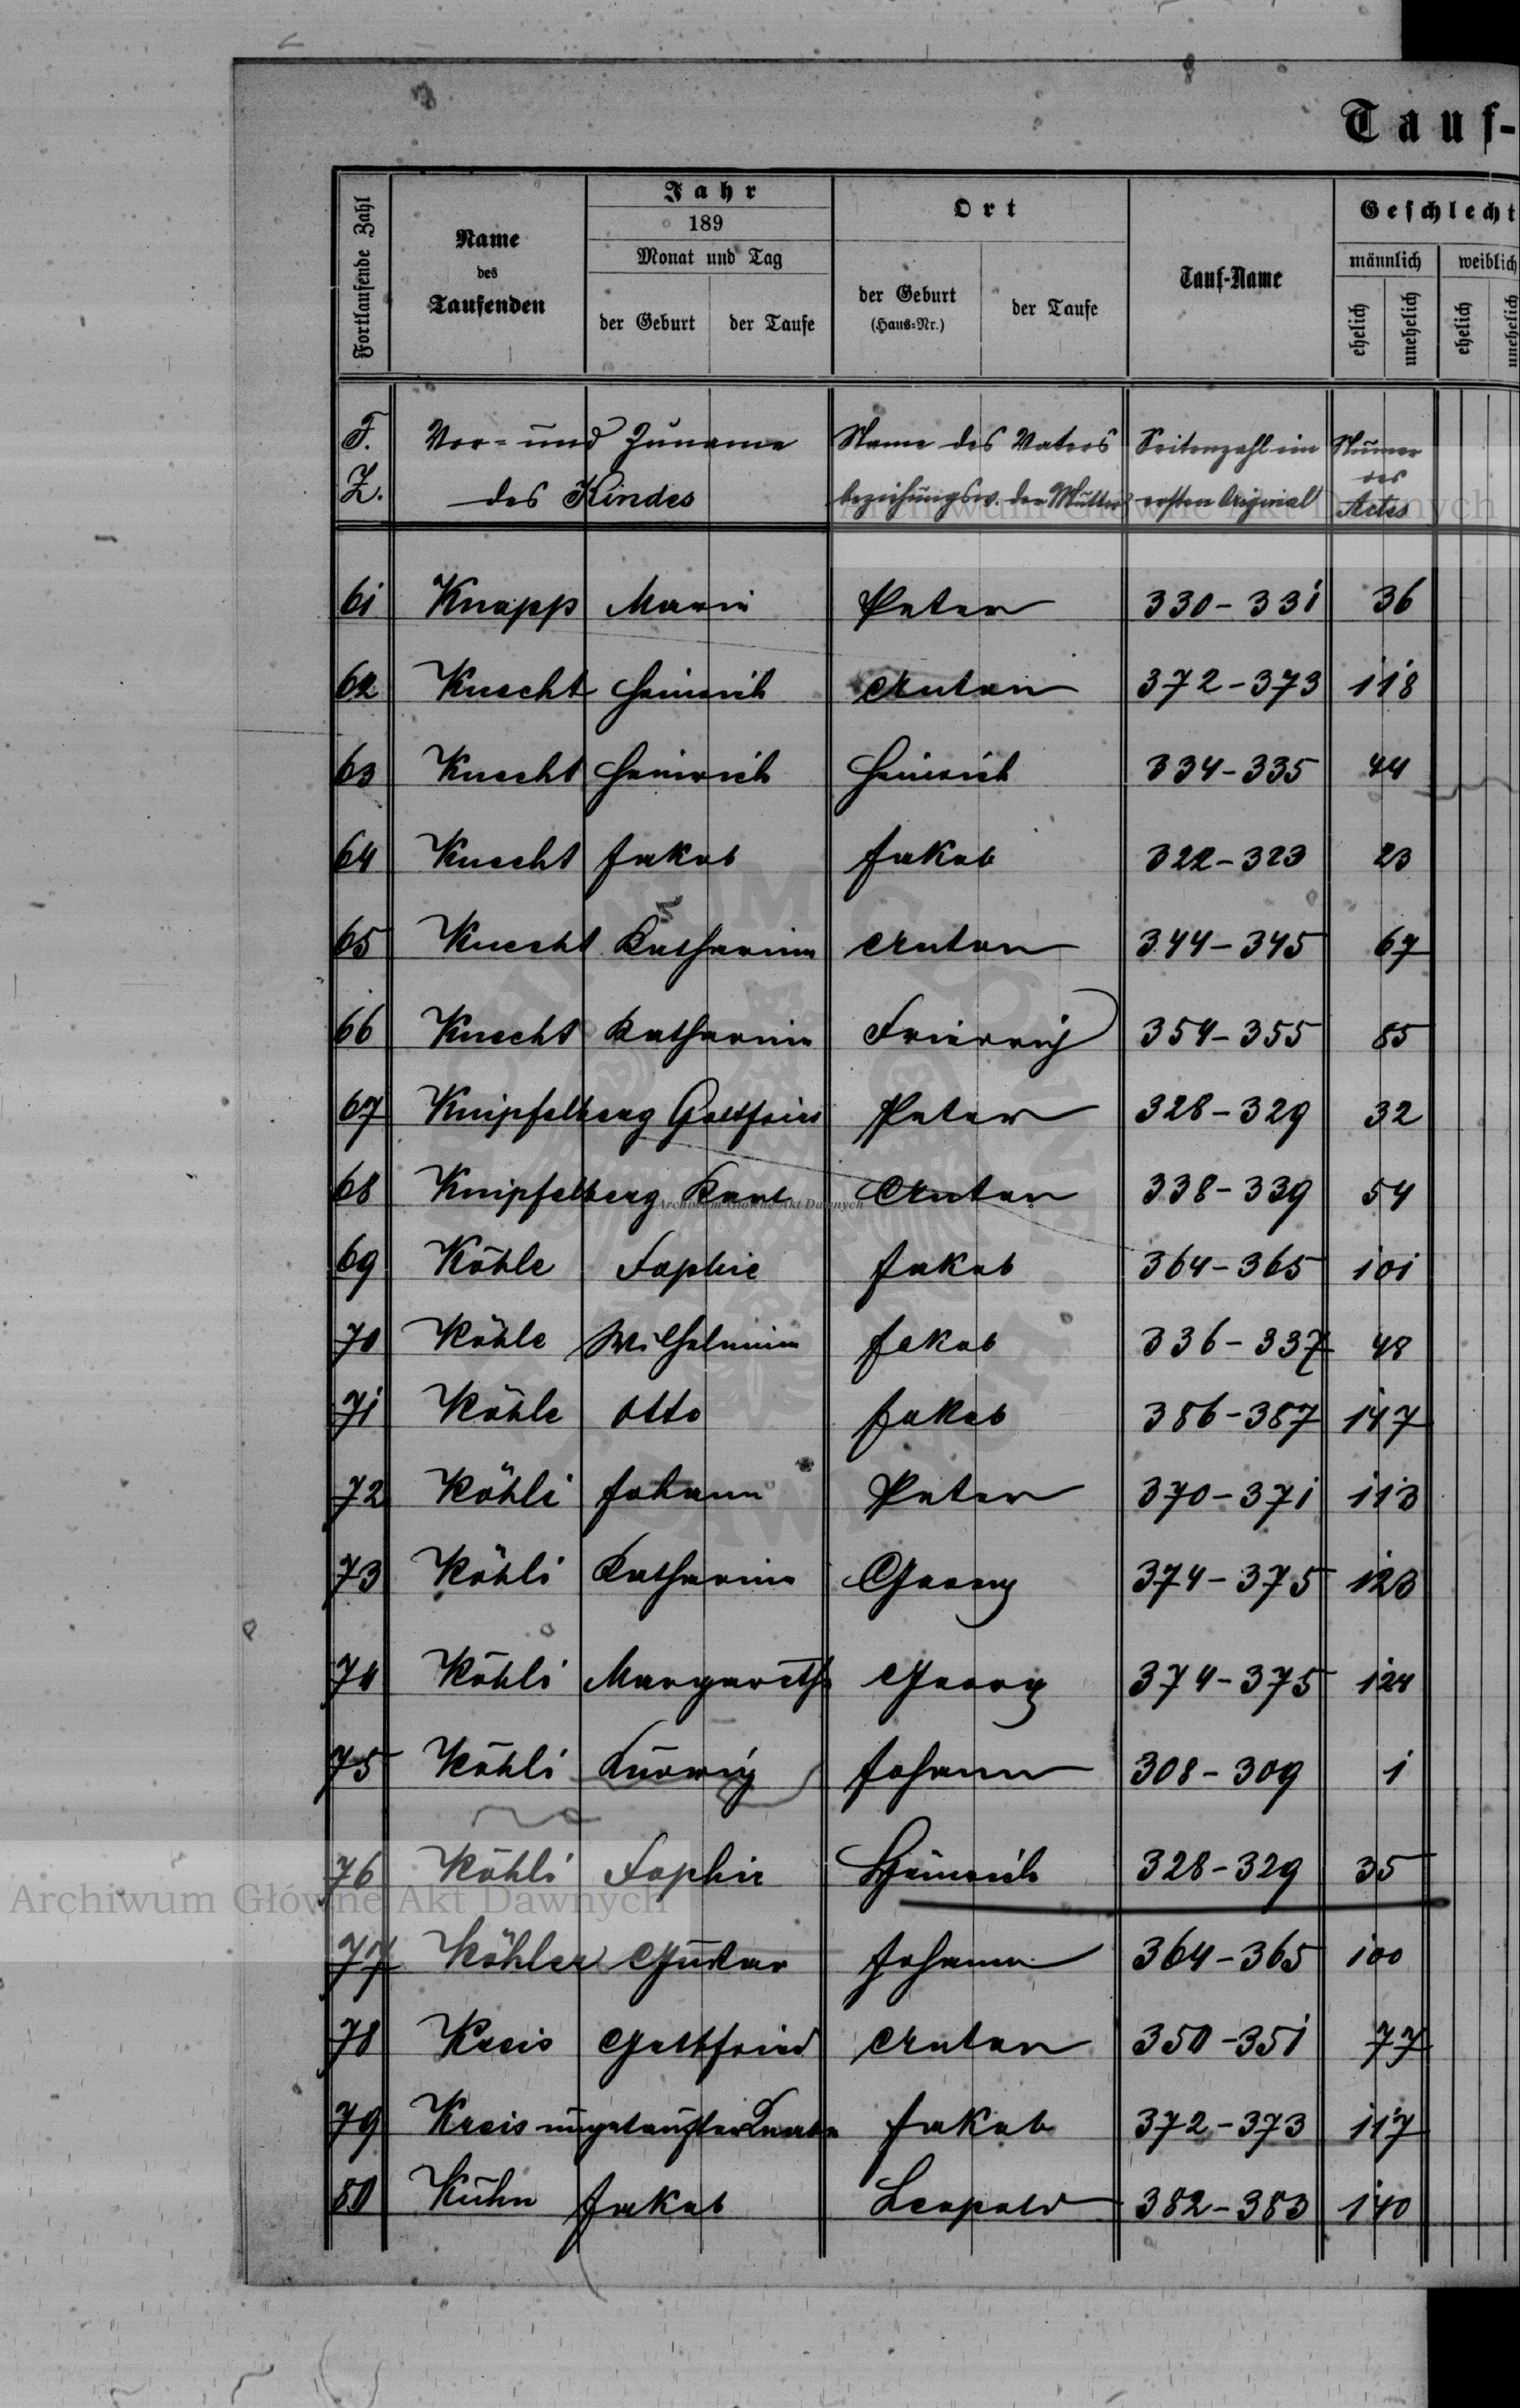 Tauf-
Fortlaufende Zahl
Name
des
Taufenden
Jahr
189
Monat und Tag
der Geburt
der Taufe
Ort
der Geburt
(Haus-Nr.)
der Taufe
Tauf-Name
Geschlecht
männlich
weiblich
ehelich
unehelich
ehelich
unehelich
F. Vor- und Zuname Name des Vaters Seitenzahl im Numer
des
Z. des Kindes beziehungsw. der Mutter ersten Original Actes
61 Knapp Maria Peter 330-331 36
62 Knecht Heinrich Anton 372-373 118
63 Knecht Heinrich Heinrich 334-335 44
64 Knecht Jakob Jakob 322-323 23
65 Knecht Katharina Anton 344-345 67
66 Knecht Katharina Friedrich 354-355 85
67 Knipfelberg Gottfried Peter 328-329 32
68 Knipfelberg Karl Anton 338-339 54
69 Köhle Sophie Jakob 364-365 101
70 Köhle Wilhelmina Jakob 336-337 48
71 Köhle Otto Jakob 386-387 147
72 Köhli Johann Peter 370-371 113
73 Köhli Katharina Georg 374-375 123
74 Köhli Margareth Georg 374-375 124
75 Köhli Ludwig Johann 308-309 1
76 Köhli Sophie Heinrich 328-329 35
77 Köhler Gustav Johann 364-365 100
78 Kreis Gottfried Anton 350-351 77
79 Kreis ungetaufter Knabe Jakob 372-373 117
80 Kühn Jakob Leopold 382-383 140
Archiwum Główne Akt Dawnych
Archiwum Główne Akt Dawnych
Archiwum Główne Akt Dawnych